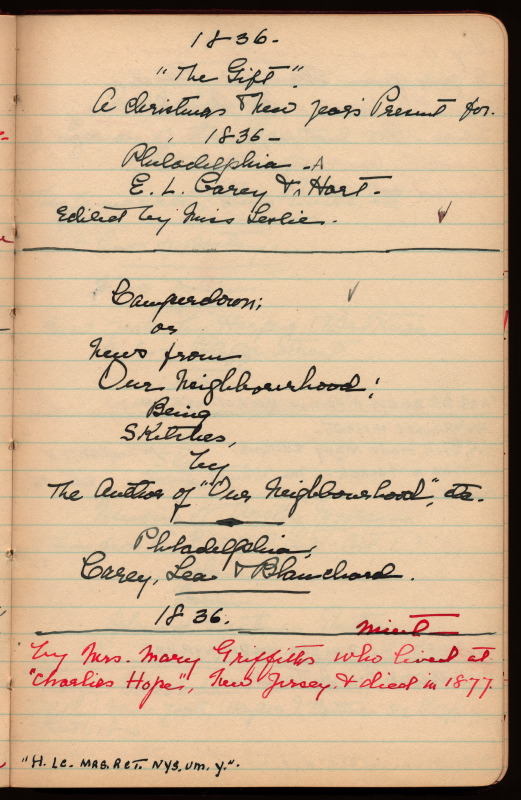 1836-
"The Gift".
A Christmas & New years Present for.
1836-
Philadelphia - A
E. L. Carey & ^ Hart -
Edited by Miss Leslie.
Camperdown;
or
News from
Our Neighbourhood;
Being
Sketches,
by
The Author of "Our Neighbourhood", etc.
Philadelphia;
Carey, Lea & Blanchard.
1836.
mint
by Mrs. Mary Griffiths who lived at
"Charlies Hope", New Jersey & died in 1877.
"H. Lc. MRS. RCT. NYS. UM. Y.".